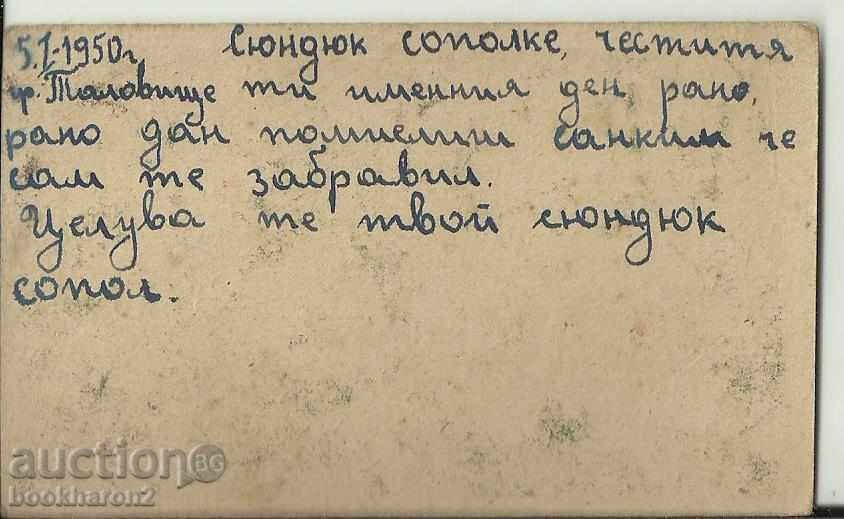 5.I.1950г. Сюндюк сополке, честитя
гр. Таловище ти именния ден, рано,
рано дан помнелиш санким че
сам те забравил.
Целува те твой сюндюк
сопол.
auction BG
bookharon2